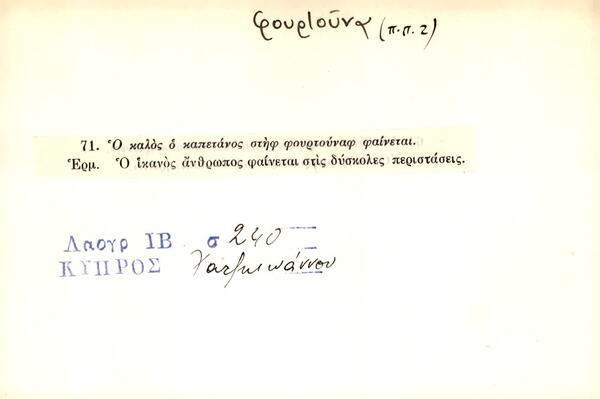 φουρτούνα (π.π. 2)
71. Ὁ καλὸς ὁ καπετάνος στὴφ φουρτούναφ φαίνεται.
Ἑρμ. Ὁ ἱκανὸς ἄνθρωπος φαίνεται στὶς δύσκολες περιστάσεις.
Λαογρ ΙΒ σ 240
ΚΥΠΡΟΣ Χατζηιωάννου